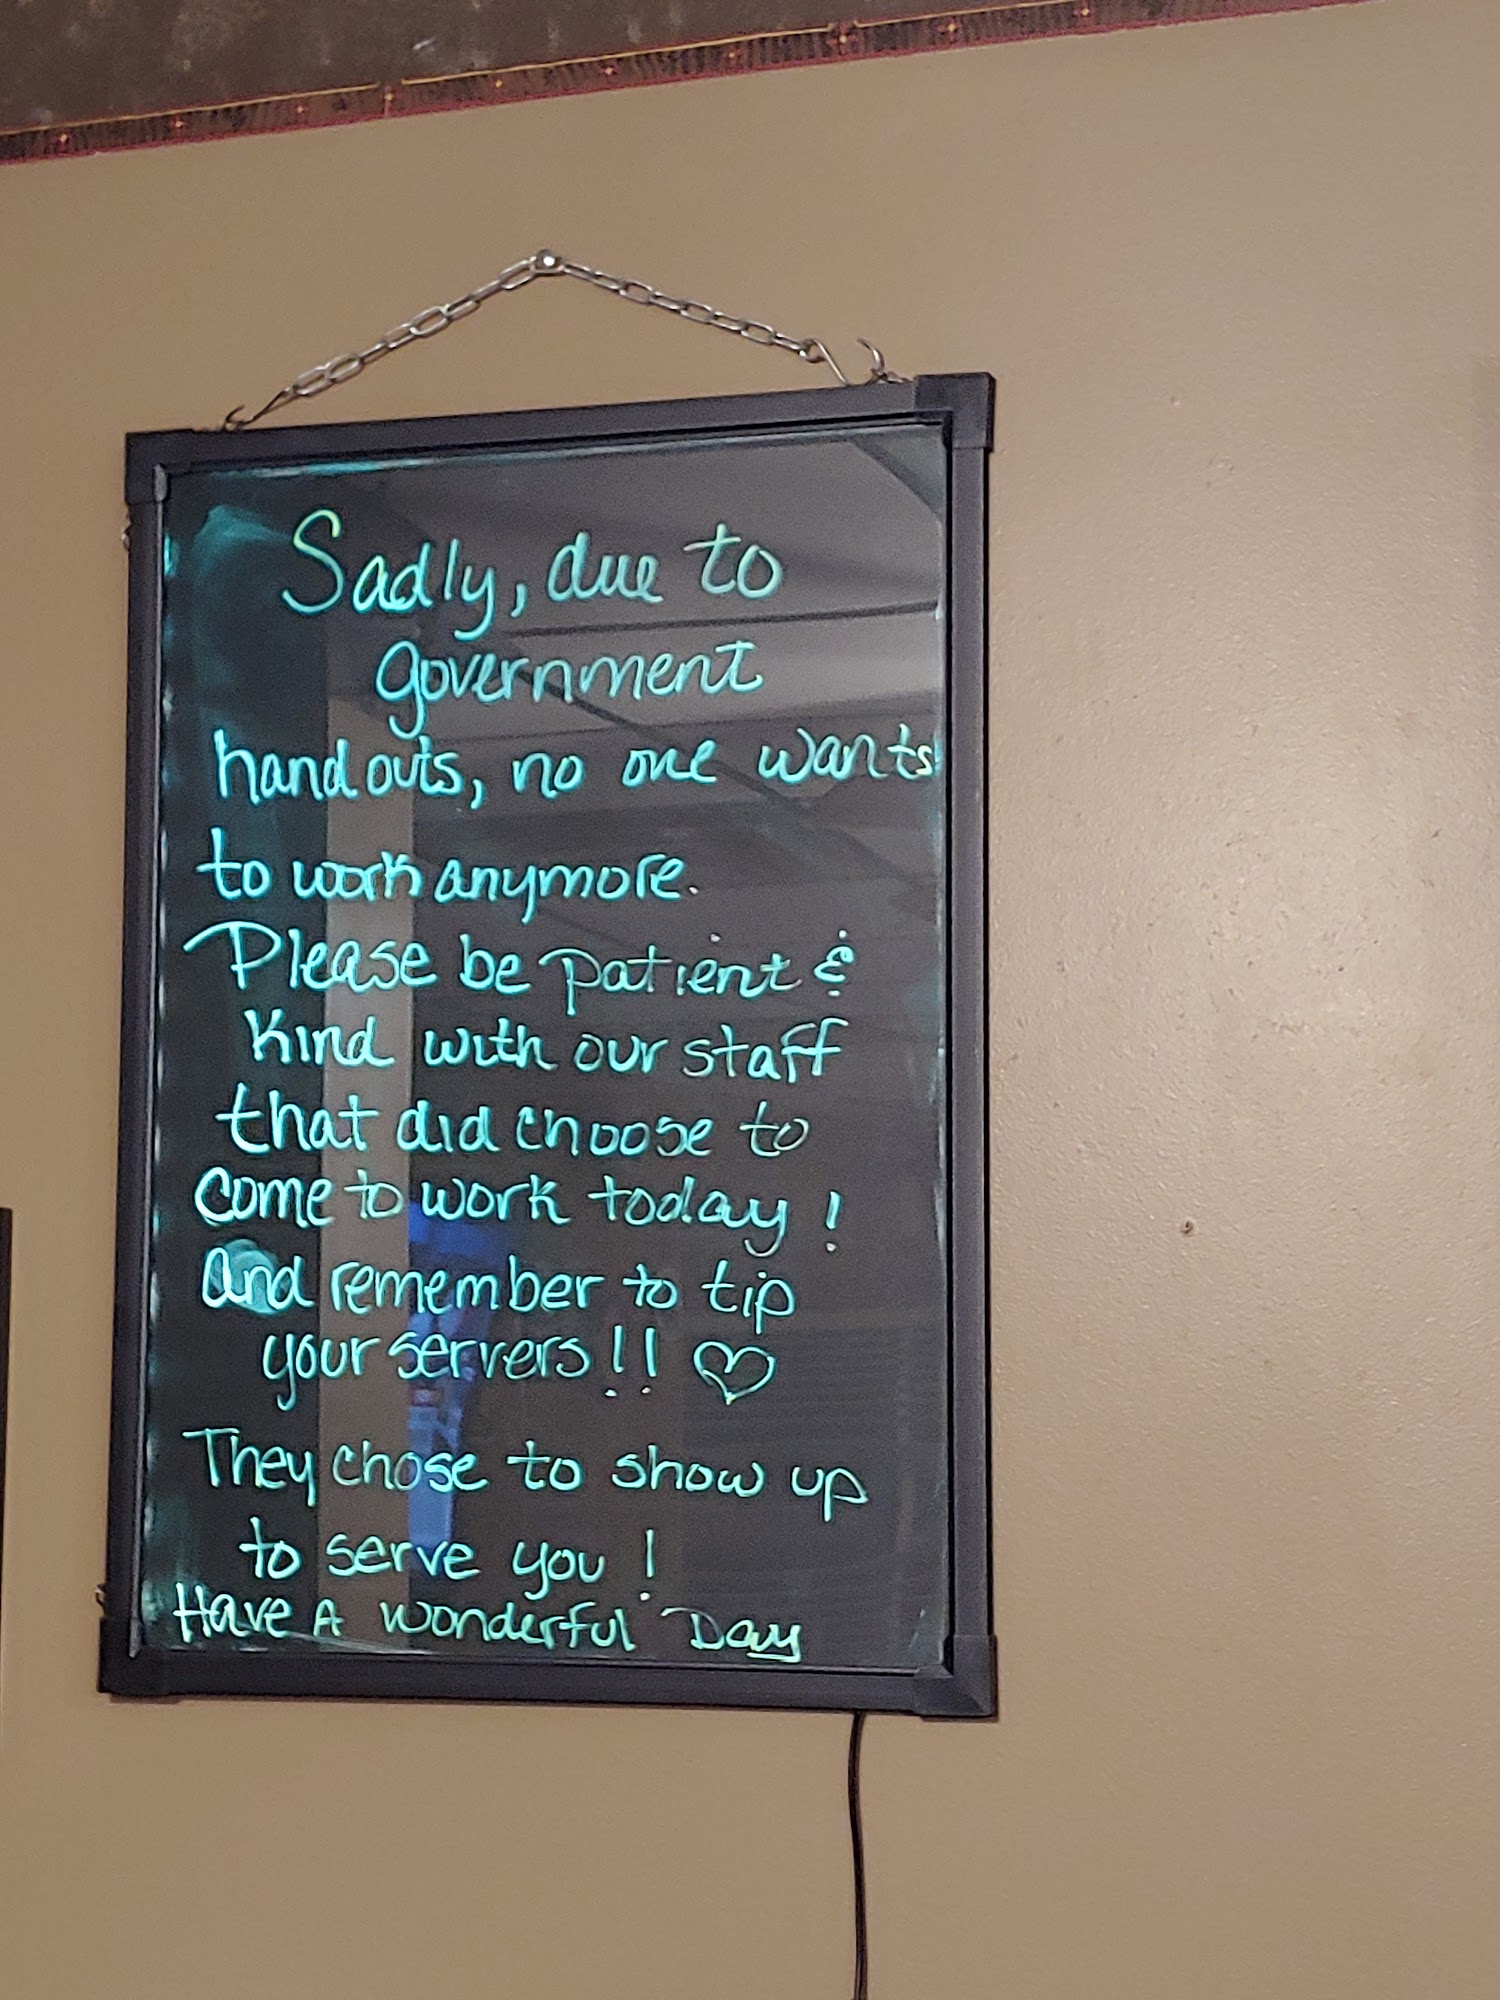 Sadly, due to
government
handouts, no one wants
to work anymore.
Please be patient &
Kind with our staff
that did choose to
come to work today!
And remember to tip
your servers!! ♡
They chose to show up
to serve you!
Have A Wonderful Day